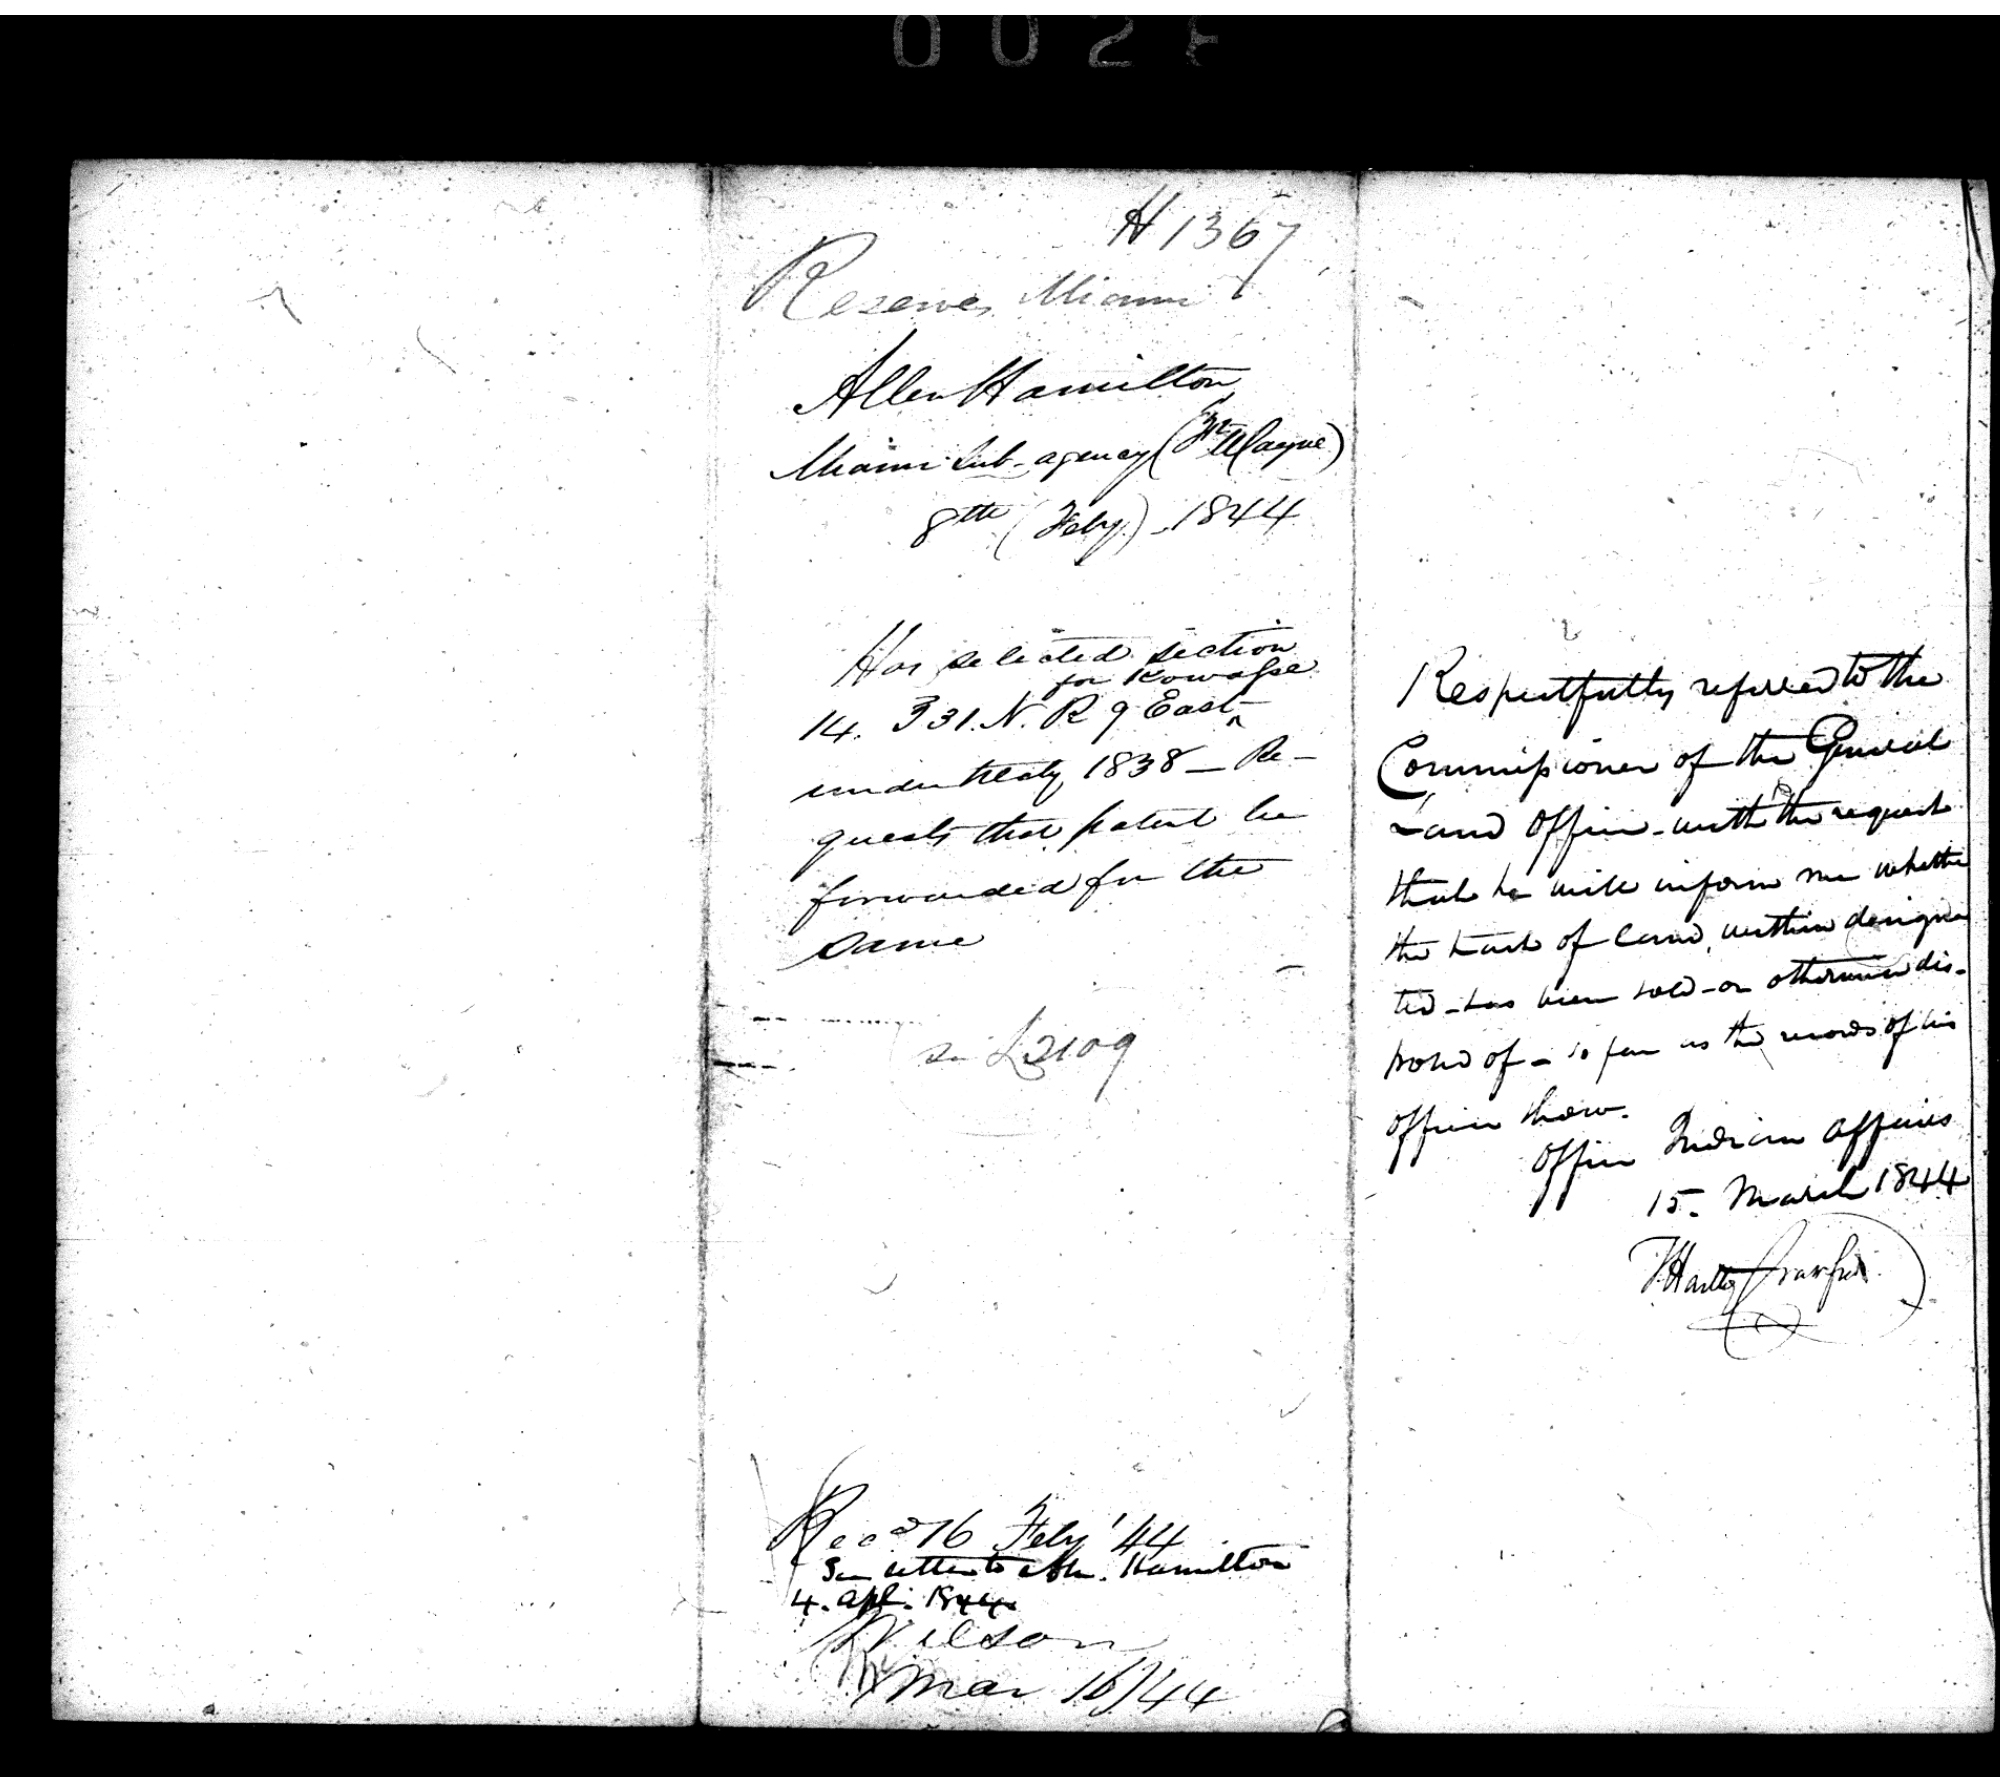 002
H 1367
Reserves Miami
Allen Hamilton
Miami Sub-agency (Ft Wayne)
8th (Feby) - 1844
Has selected section
for Kowassee
14. T31. N. R 9 East ‸
under treaty 1838 - Re-
quests that patent be
forwarded for the
same
L2109
Recd 16 Feby '44
See letter to Hamilton
4. Apl. 1844
Wilson
Mar 16/44
Respectfully referred to the
Commissioner of the General
Land Office - with the request
that he will inform me whether
the tract of land, within designa
ted - has been sold - or otherwise dis-
posed of - so far as the records of his
office show.
Office Indian Affairs
15. March 1844
T Hartley Crawford